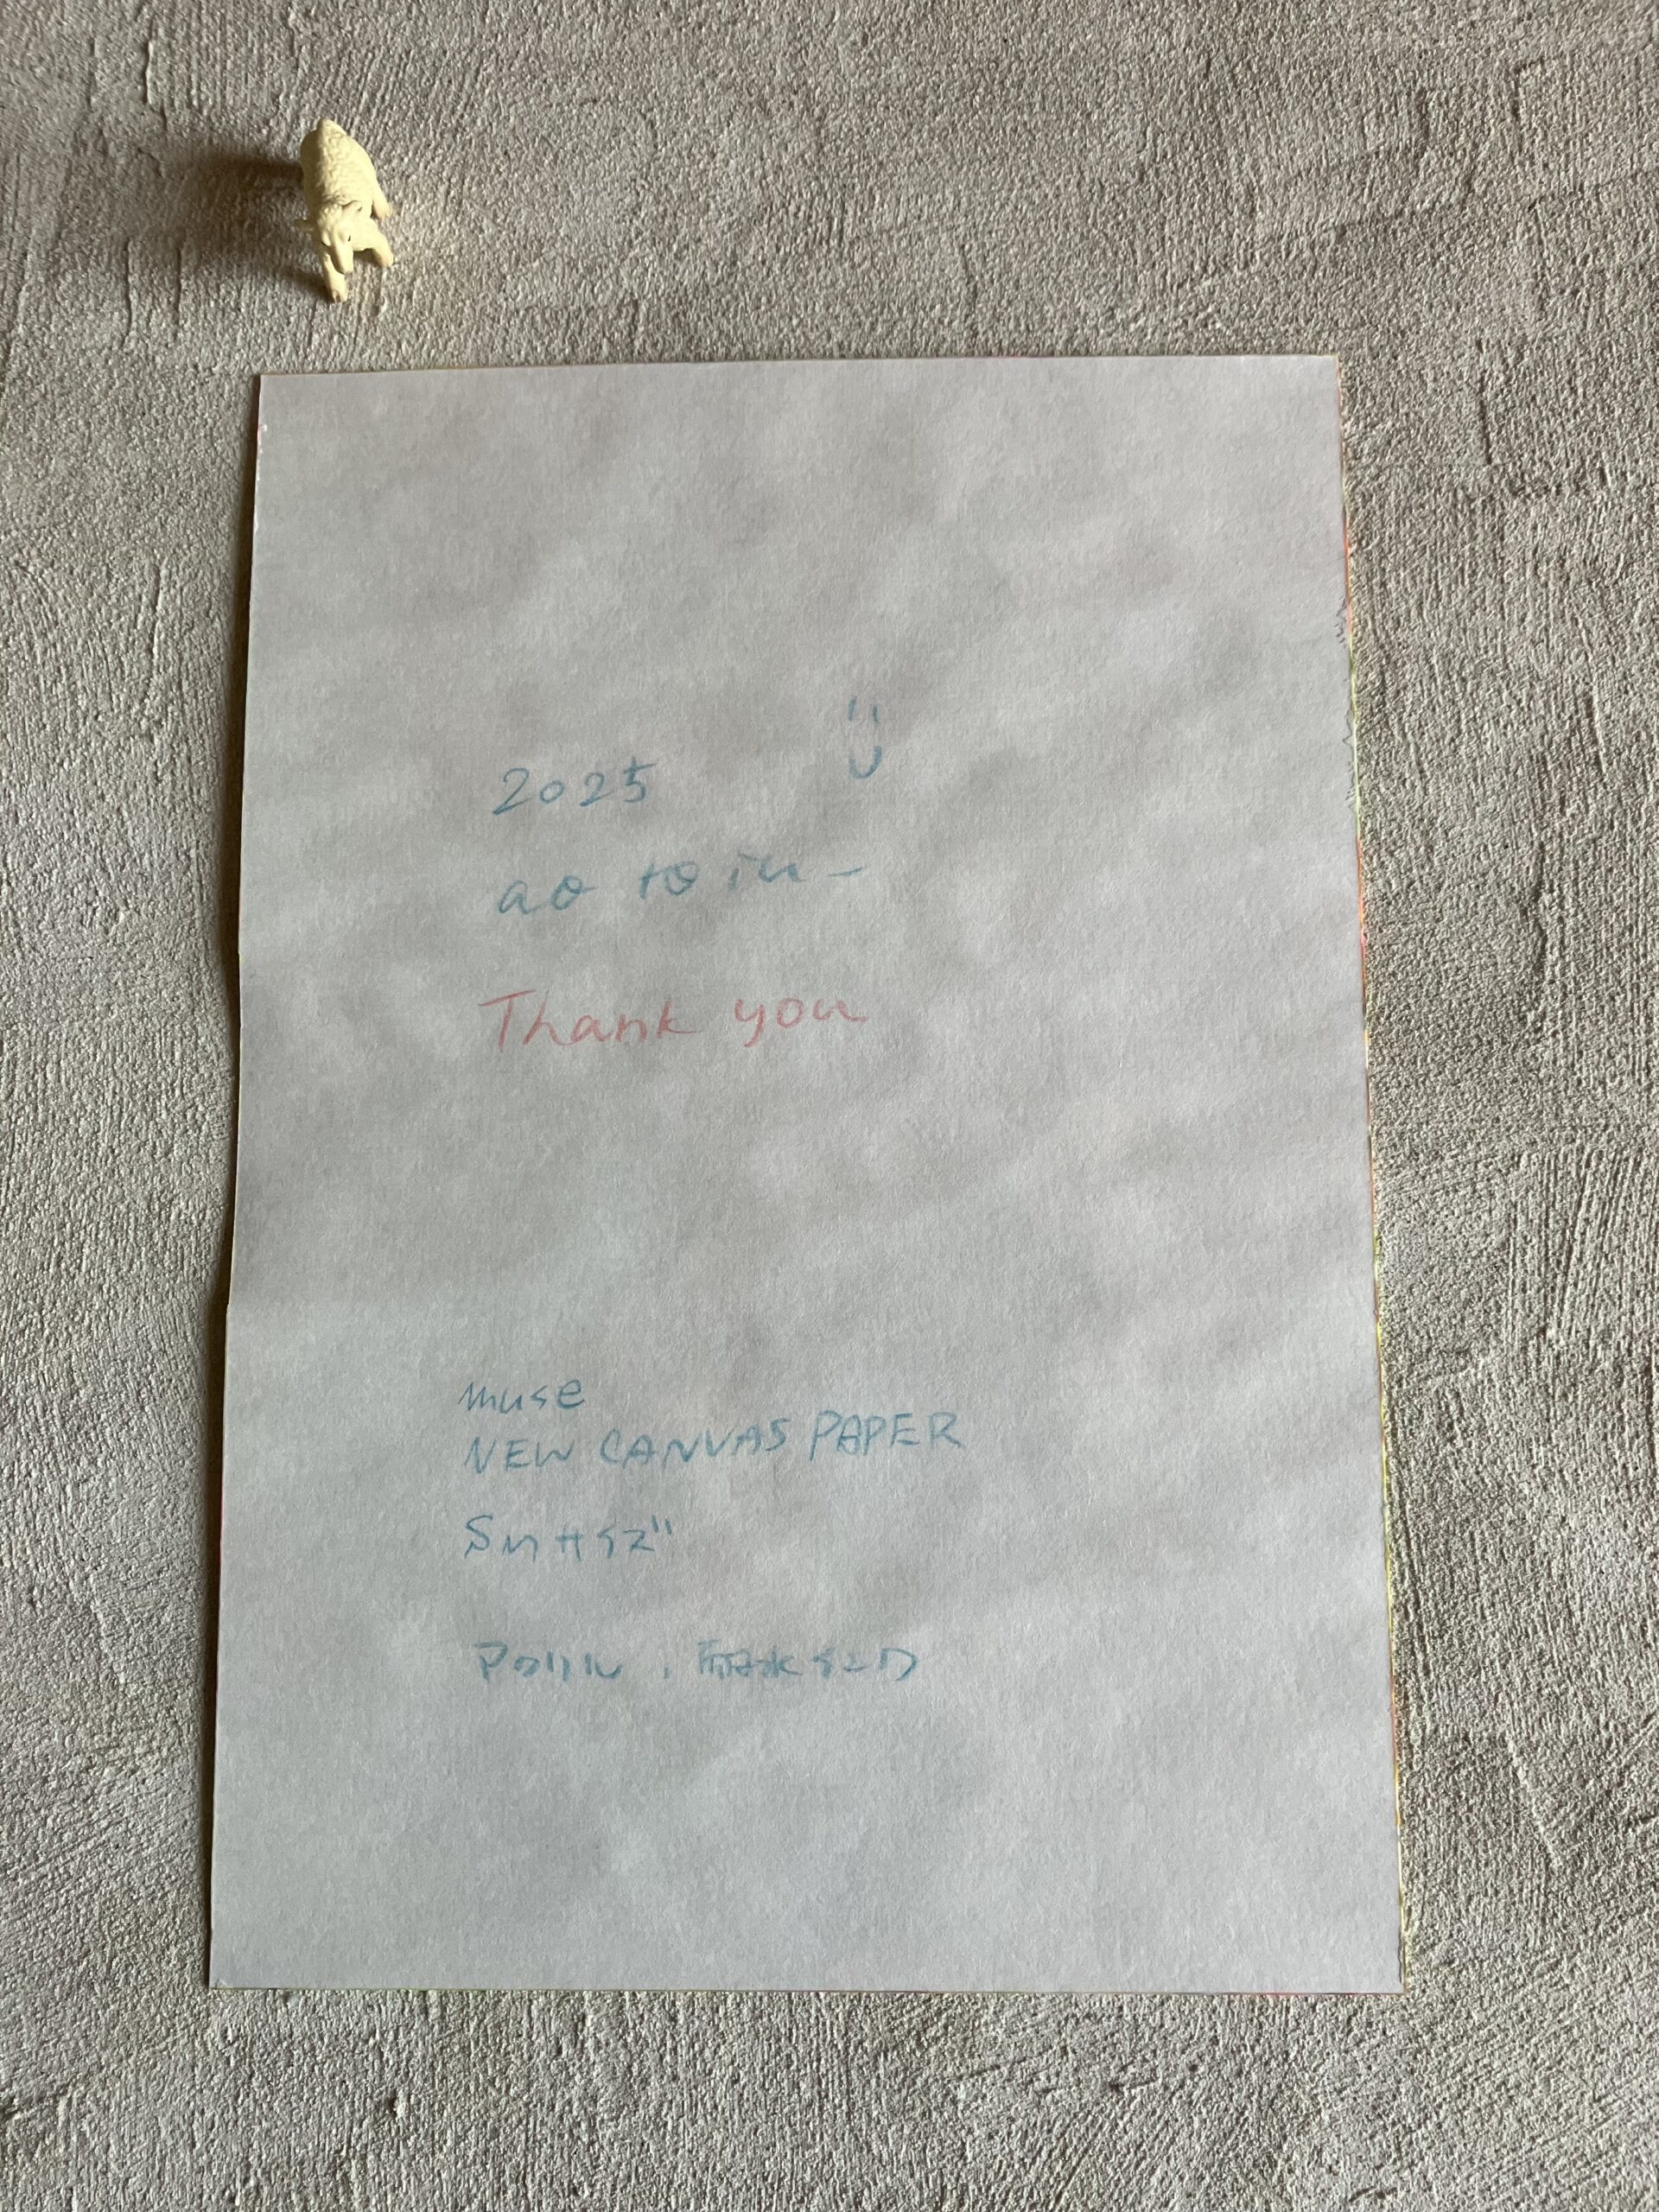 2025
ao to in-
Thank you
muse
NEW CANVAS PAPER
SMサイズ
アクリル、耐水ペン